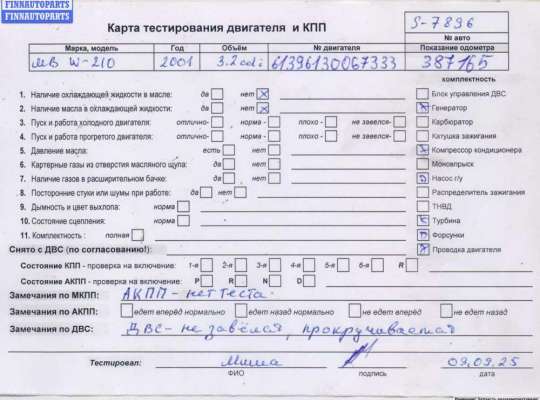 FINNAUTOPARTS
FINNAUTOPARTS
FINNAUTOPARTS
Карта тестирования двигателя и КПП
S-7896
№ авто
Марка, модель Год Объём № двигателя Показание одометра
МВ W-210 2001 3.2 cdi 61396130067333 387165
комплектность
1. Наличие охлаждающей жидкости в масле: да нет Блок управления ДВС
2. Наличие масла в охлаждающей жидкости: да нет Генератор
3. Пуск и работа холодного двигателя: отлично- норма - плохо - не завелся- Карбюратор
4. Пуск и работа прогретого двигателя: отлично- норма - плохо - не завелся- Катушка зажигания
5. Давление масла: есть нет Компрессор кондиционера
6. Картерные газы из отверстия масляного щупа: да нет Моновпрыск
7. Наличие газов в расширительном бачке: да нет Насос г/у
8. Посторонние стуки или шумы при работе: да нет Распределитель зажигания
9. Дымность и цвет выхлопа: норма ТНВД
10. Состояние сцепления: норма Турбина
11. Комплектность : полная Форсунки
Снято с ДВС (по согласованию!): Проводка двигателя
Состояние КПП - проверка на включение: 1-я 2-я 3-я 4-я 5-я 6-я Р R
Состояние АКПП - проверка на включение: P R N D
Замечания по МКПП: АКПП - нет теста.
Замечания по АКПП: едет вперёд нормально едет назад нормально не едет вперёд не едет назад
Замечания по ДВС: ДВС - не завёлся, прокручивается
Тестировал: Миша 09.09.25
ФИО подпись дата